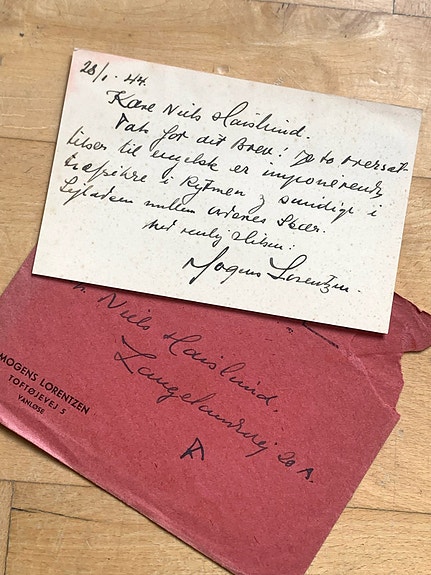 28/1·44.
Kære Niels Haislund.
Tak for dit Brev! De to Oversæt-
telser til engelsk er imponerende
træfsikre i Rytmen og samtidig i
mellem Ordenes Skær.
med venlig Hilsen:
Mogens Lorentzen.
Niels Haislund.
20 A.
MOGENS LORENTZEN
TOFTØJEVEJ 5
VANLØSE